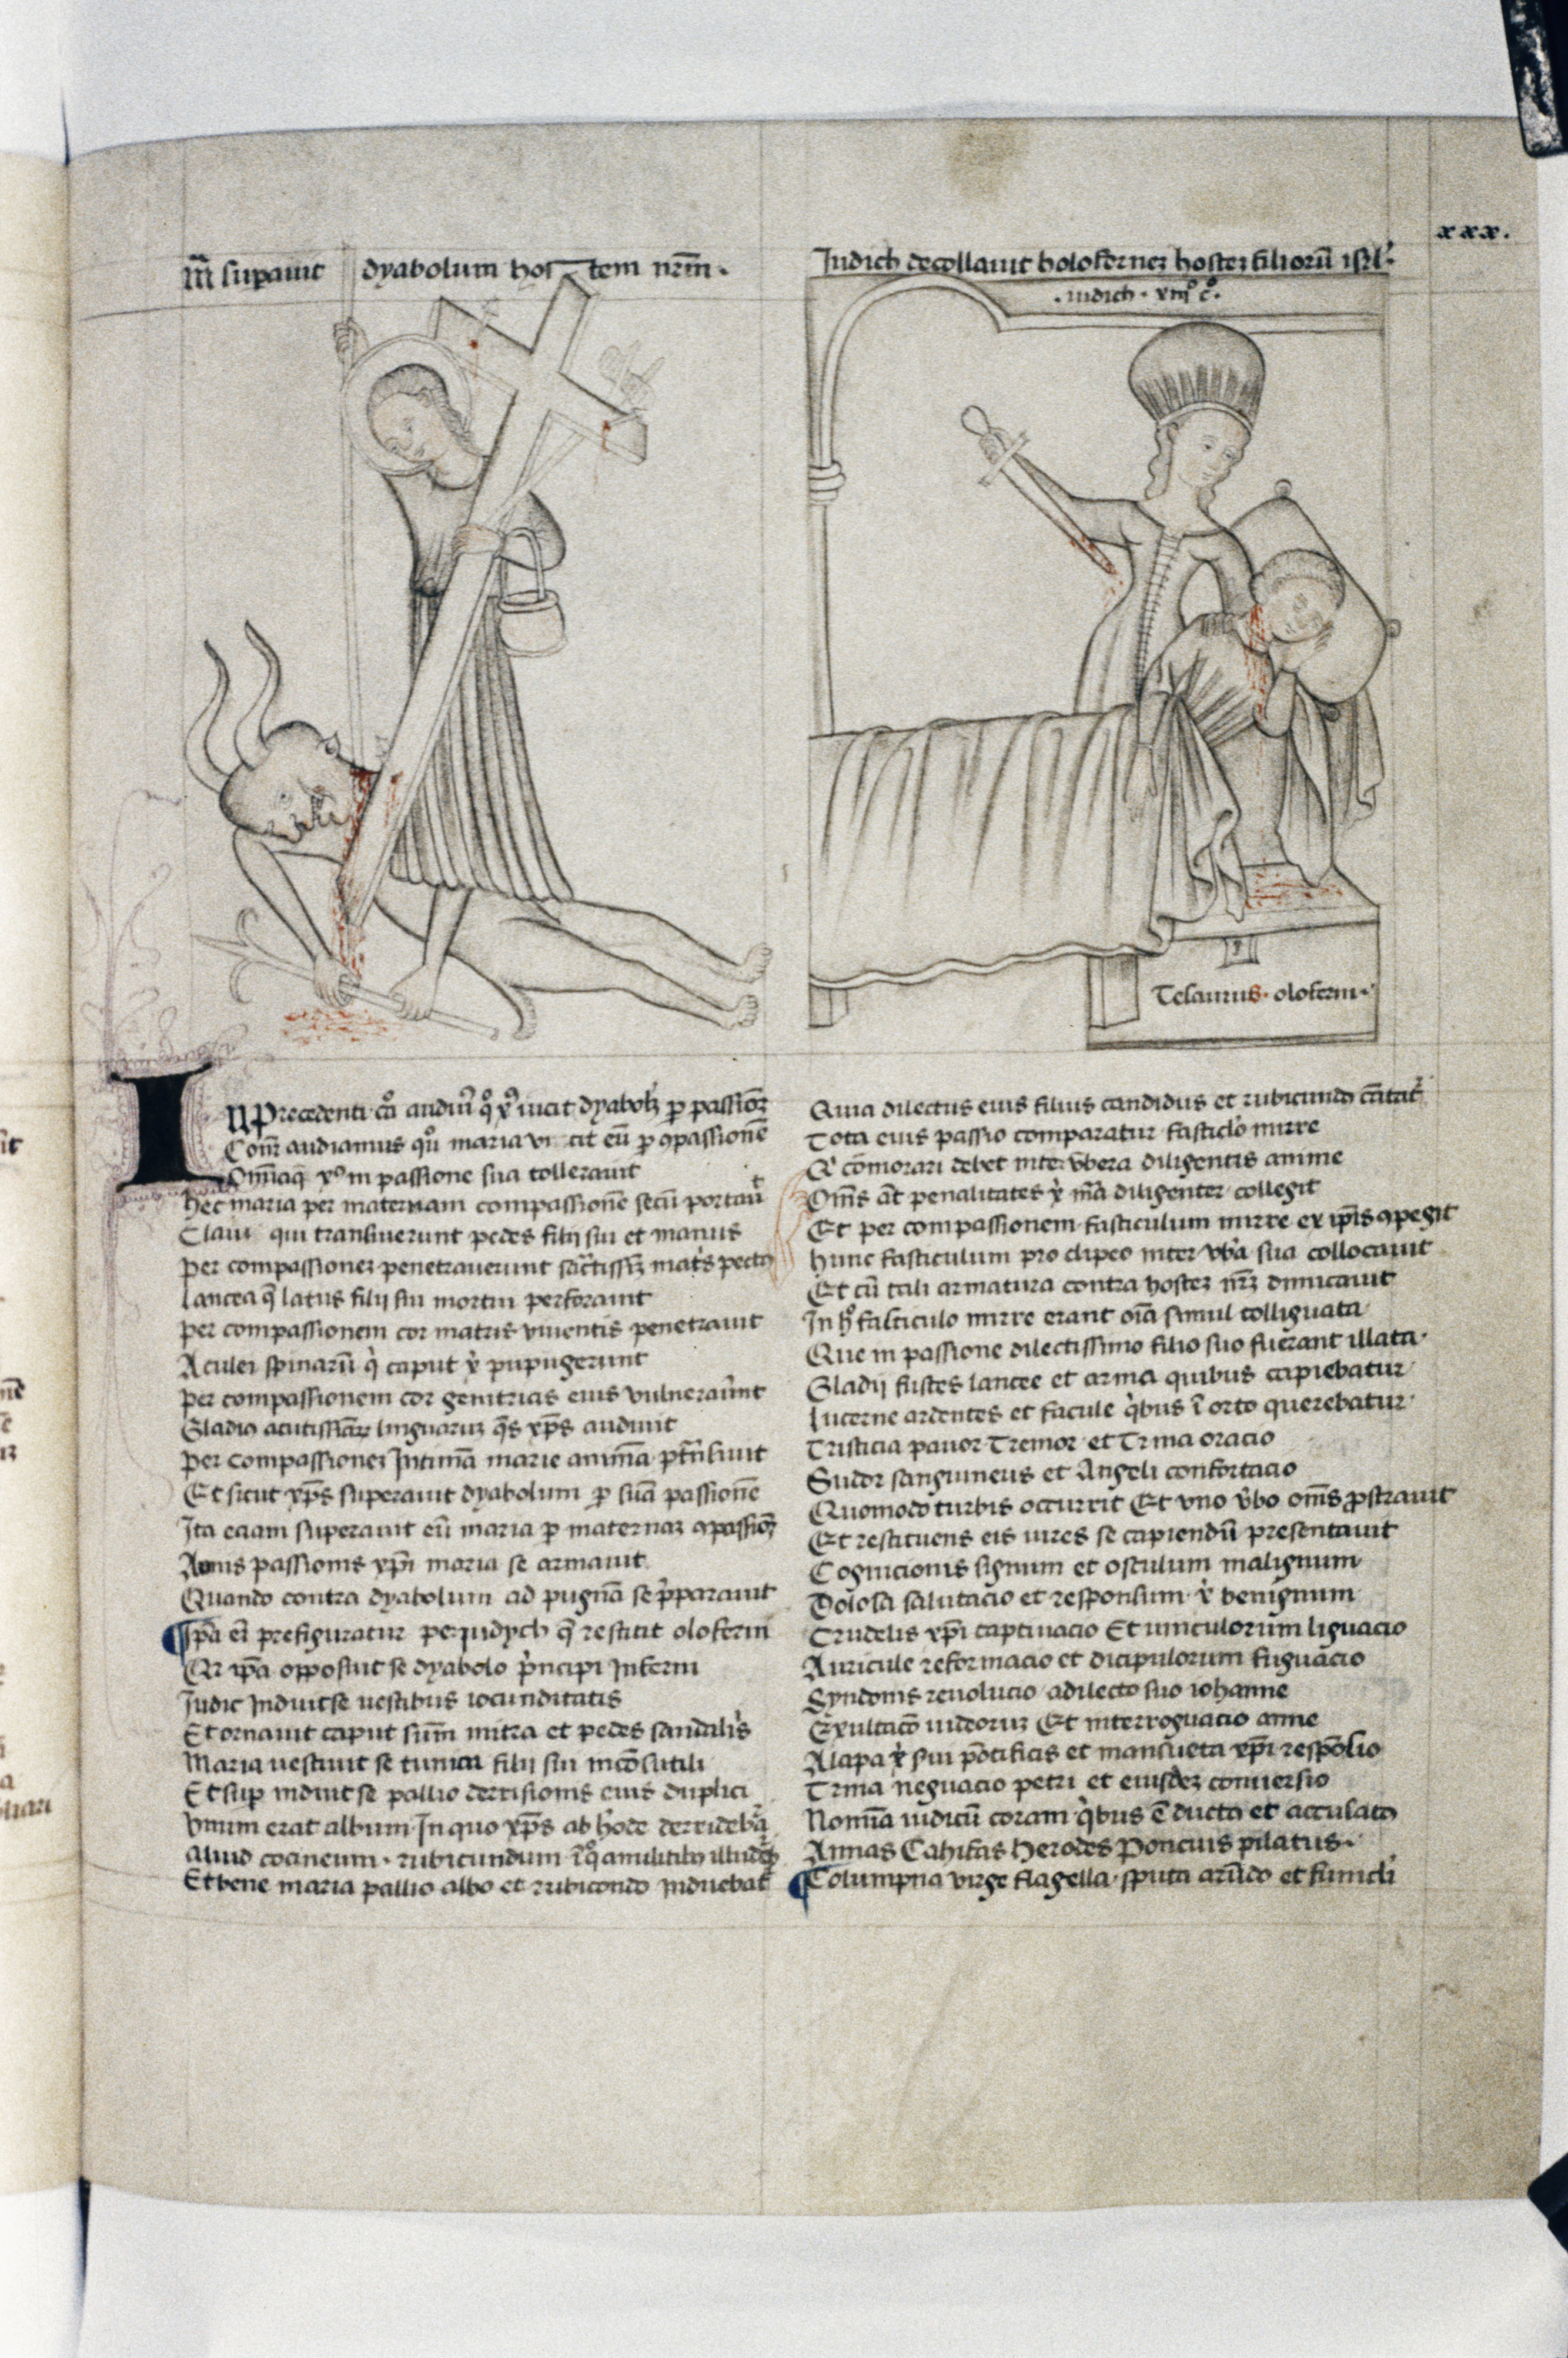 xxx.
M̄r̄ sup̱auit dyabolum hostem nr̄m̄.
Judich decollauit holofernez hostez filiorū isrl'.
.iudich. xiijº cº.
Tesaurus. oloferni.
IN precedenti cō audiuīº qº xp̄º uicit dyabolū p̱ passionē
Consequenter audiamus quō maria vicit eū p̱ ꝯpassionē
Omīaqꝫ xp̄º in passione sua tollerauit
hec maria per maternam compassionē secū portauit
Claui qui transiuerunt pedes filij sui et manus
per compassionez penetrauerunt sāctissimū matris pectus
lancea q̄ latus filij sui mortui perforauit
per compassionem cor matris viuentis penetrauit
Aculei spinarū q̇ caput xp̄i pupugerunt
per compassionem cor genitricis eius vulnerauer̄nt
Gladio acutissimarū linguaruz q̄s xp̄s audiuit
per compassionez Intimā marie animā p̱transiuit
Et sicut xp̄s superauit dyabolum p̱ suā passionē
Ita eciam superauit eū maria p̱ maternaz ꝯpassionē
Armis passionis xp̄i maria se armauit
Quando contra dyabolum ad pugnā se p̄parauit
¶ Ipa eī prefiguratur per iudych q̄ restitit oloferni
Qr ip̄a opposuit se dyabolo p̄ncipi Inferni
Judic Induit se uestibus iocunditatis
Et ornauit caput suūm mitra et pedes sandalijs
Maria uestiuit se tunica filij sui incōsutili
Et sup̱ induit se pallio derrisionis eius duplici
Vnum erat album In quo xp̄s ab hode derridebat
aliud cocineum. rubicundum ī qº a militibꝫ illudebat
Et bene maria pallio albo et rubicondo induebat
Quia dilectus eius filius candidus et rubicundo cātat
Tota eius passio comparatur fasticlo mirre
Qr comorari debet inter vbera diligentis anime
Omīs āt penalitates xp̄i mīa diligenter collegit
Et per compassionem fasticulum mirre ex ip̄is ꝯpegit
hunc fasticulum pro clipeo inter vbera sua collocauit
Et cū tali armatura contra hostez nr̄z dimicauit
In hº fasticulo mirre erant oīa simul colliguata
Que in passione dilectissimo filio suo fuerant illata.
Gladij fustes lancee et arma quibus capiebatur
lucerne ardentes et facule q̇bus ī orto querebatur
Tristicia pauor Tremor et Trina oracio
Sudor sanguineus et Angeli confortacio
Quomodo turbis occurrit Et vno vbo omīs ꝓstrauit
Et restituens eis uires se capiendū presentauit
Cognicionis signum et osculum malignum
Dolosa salutacio et responsum xp̄i benignum
Crudelis xp̄i captiuacio Et uinculorum liguacio
Auricule reformacio et dicipulorum fuguacio
Syndonis reuolucio a dilecto suo iohanne
Exultacō iudeoruz Et interroguacio anne
Alapa xp̄i sui pōtificis et mansueta xp̄i respōsio
Trina neguacio petri et eiusdez conuersio
Nomīa iudicū coram q̇bus ē ducto et accusato
Annas Cahifas herodes Poncius pilatus.
¶ Columpna virge flagella. sputa arūdo et funicli